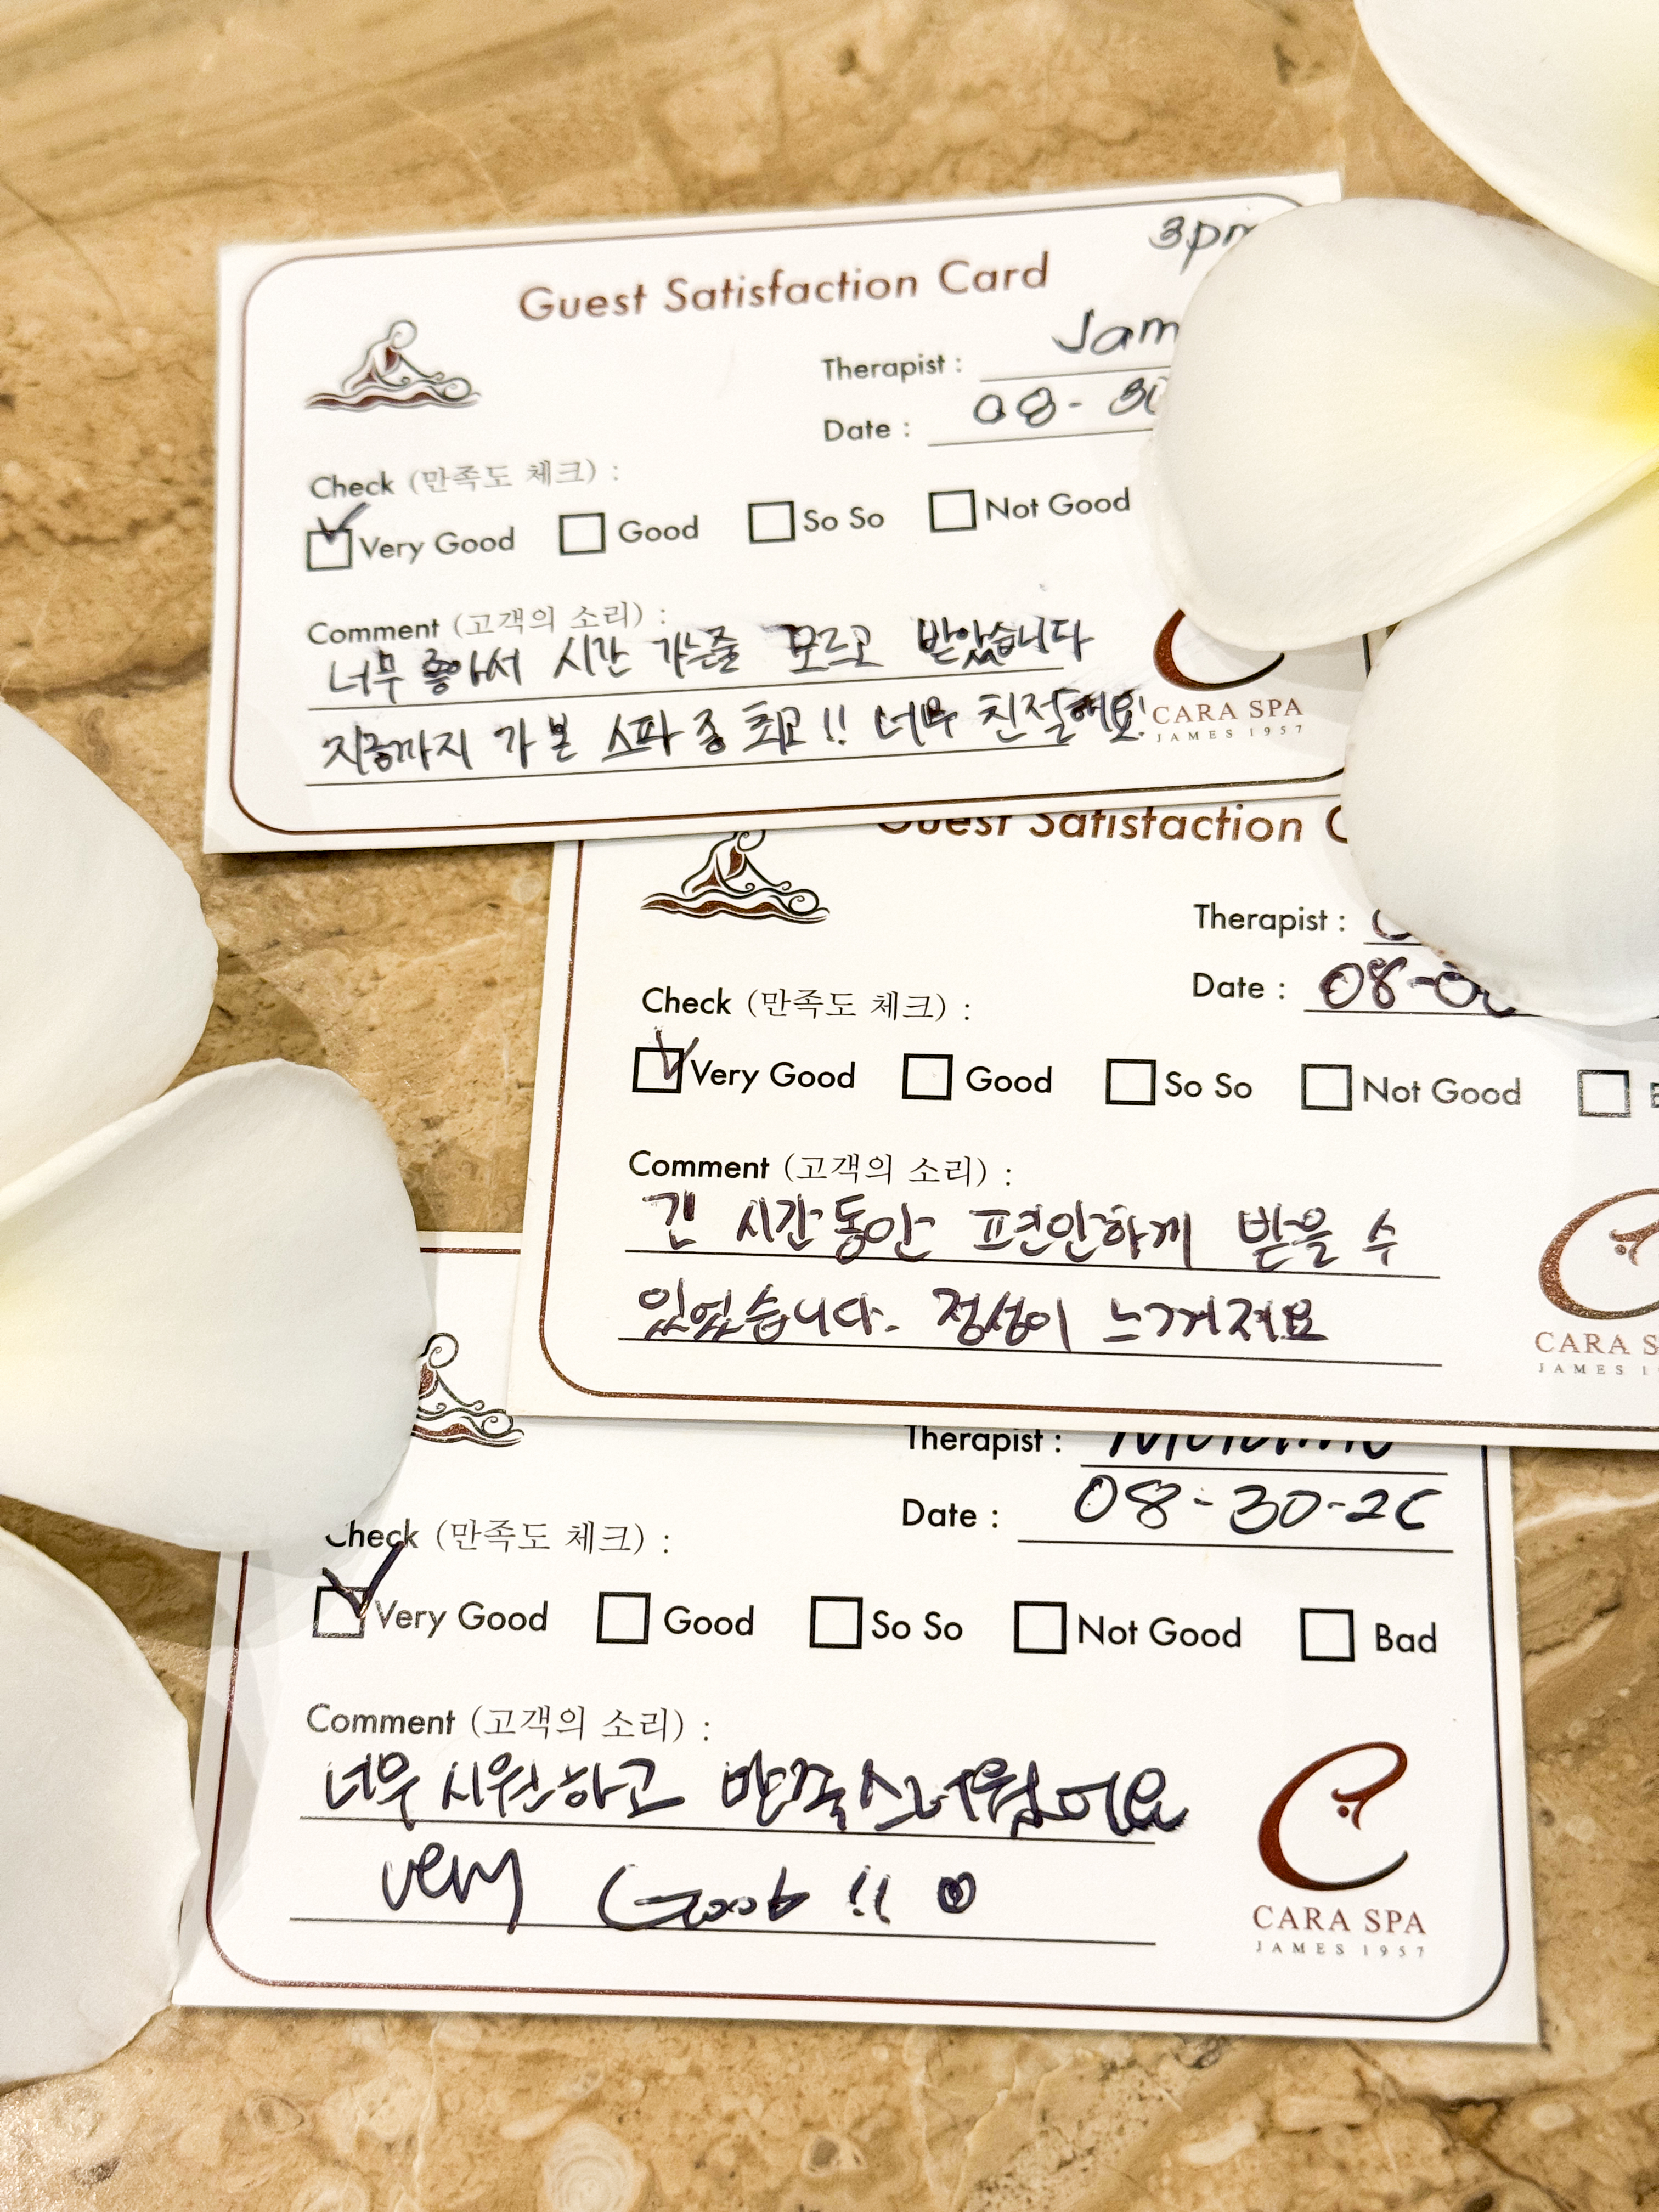 3pm
Guest Satisfaction Card
Therapist :
Date : 08-30
Check (만족도 체크) :
Very Good Good So So Not Good
Comment (고객의 소리) :
너무 좋아서 시간 가는줄 모르고 받았습니다
지금까지 가 본 스파 중 최고!! 너무 친절해요!
CARA SPA
JAMES 1957
Guest Satisfaction
Therapist :
Date : 08-
Check (만족도 체크) :
Very Good Good So So Not Good
Comment (고객의 소리) :
긴 시간동안 편안하게 받을 수
있었습니다. 정성이 느껴져요
CARA
JAMES
Therapist :
Date : 08-30-26
Check (만족도 체크) :
Very Good Good So So Not Good Bad
Comment (고객의 소리) :
너무 시원하고 만족스러웠어요
very Good !!
CARA SPA
JAMES 1957